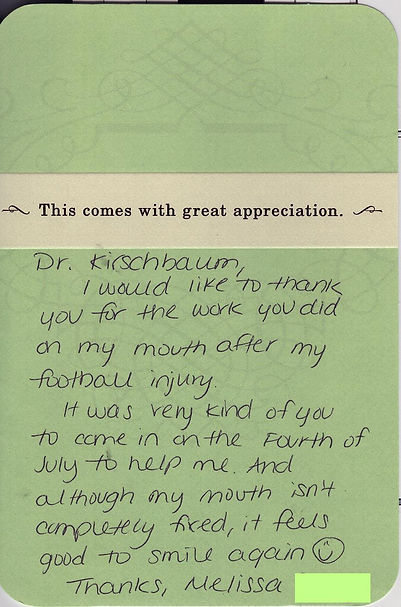 This comes with great appreciation.
Dr. Kirschbaum,
I would like to thank
you for the work you did
on my mouth after my
football injury.
It was very kind of you
to come in on the Fourth of
July to help me. And
although my mouth isn't
completely fixed, it feels
good to smile again ☺
Thanks, Melissa